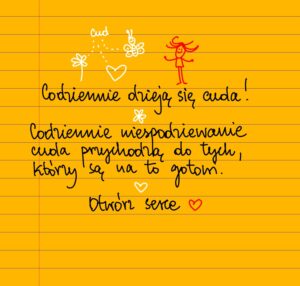 cud
Codziennie dzieją się cuda!
Codziennie niespodziewanie
cuda przychodzą do tych,
którzy są na to gotowi.
Otwórz serce